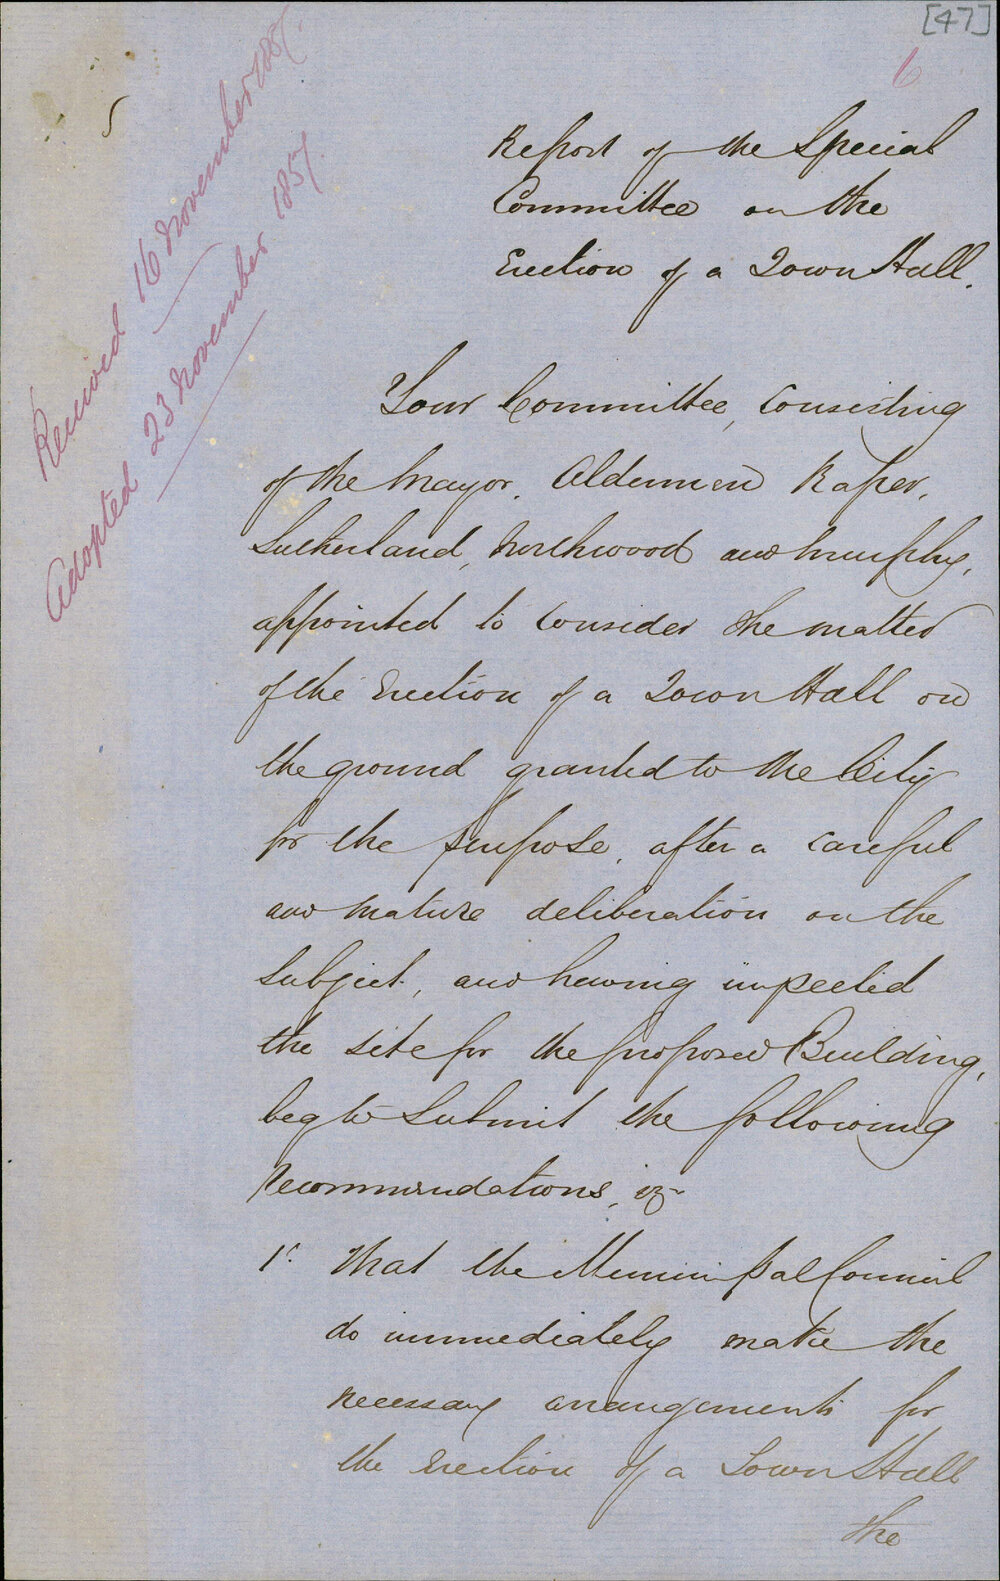 [47]
6
Received 16 November 1857.
Adopted 23 November 1857.
Report of the Special
Committee on the
Erection of a Town Hall.
Your Committee, consisting
of the Mayor, Aldermen Raper,
Sutherland, Northwood and Murphy,
appointed to consider the matter
of the Erection of a Town Hall on
the ground granted to the City
for the purpose, after a careful
and mature deliberation on the
subject, and having inspected
the site for the proposed Building,
beg to submit the following
recommendations, viz
1st. That the Municipal Council
do immediately make the
necessary arrangements for
the Erection of a Town Hall
the